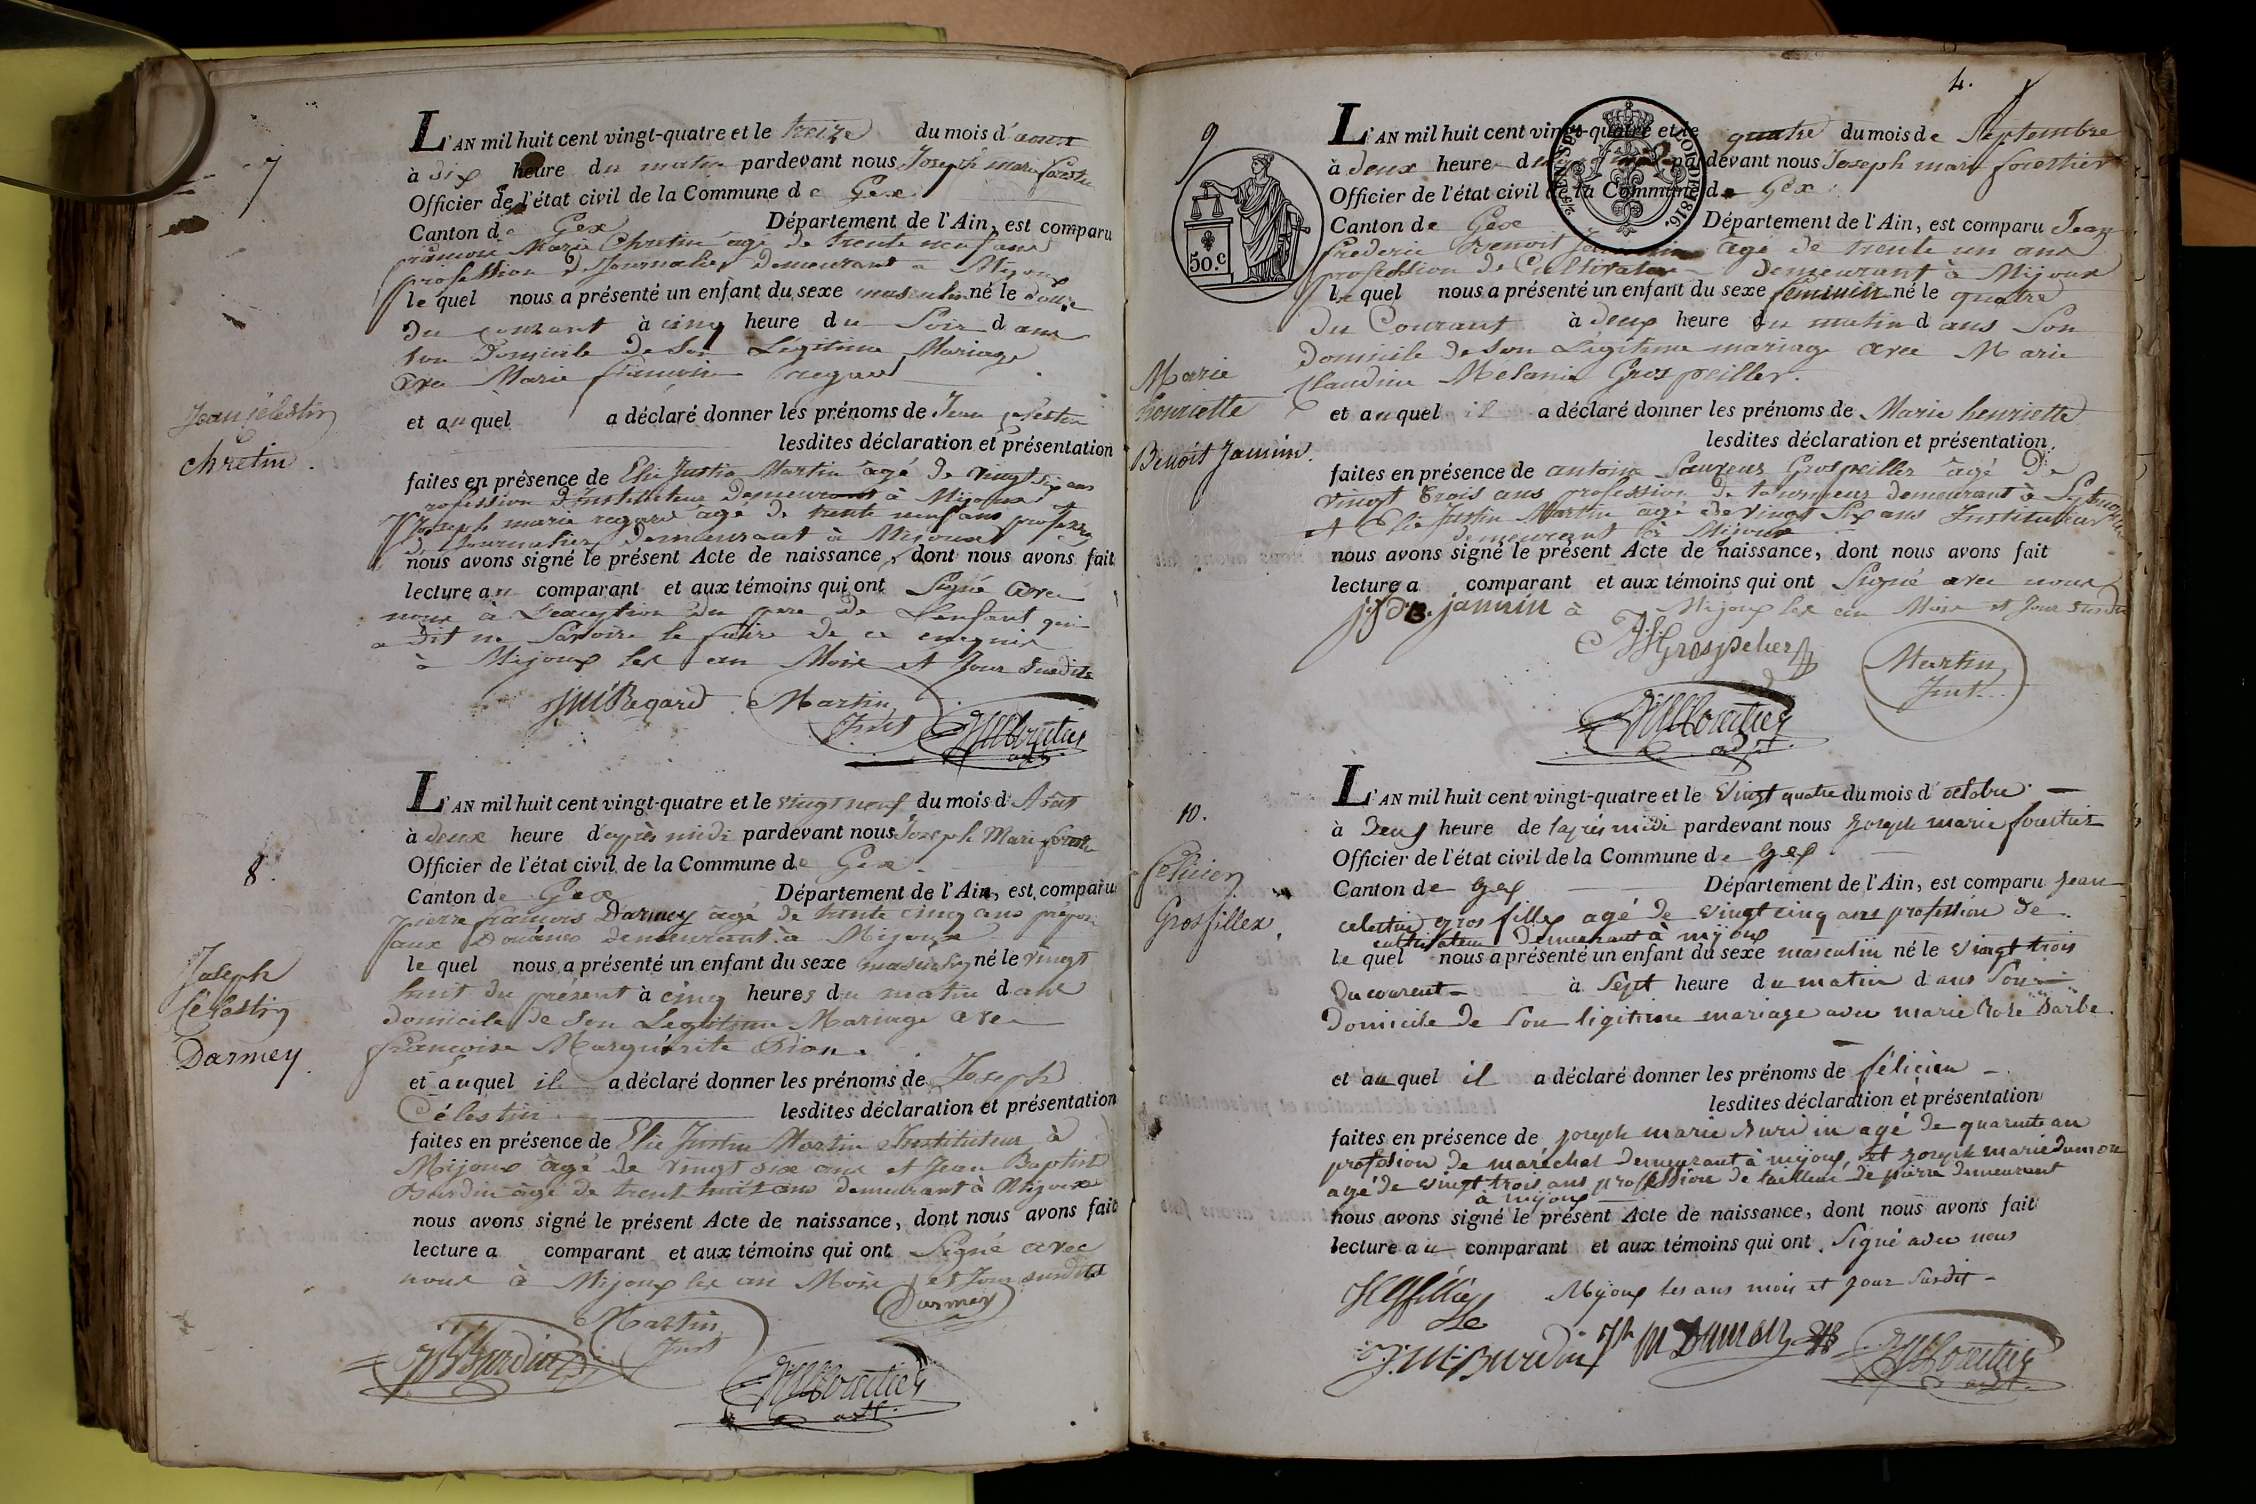 7
L'AN mil huit cent vingt-quatre et le treize du mois d'aout
à dix heure du matin pardevant nous Joseph marie forestier
Officier de l'état civil de la Commune de Gex
Canton de Gex Département de l'Ain, est comparu
françois Marie Chretin agé de trente neuf ans
profession de Journalier demeurant à Mijoux
le quel nous a présenté un enfant du sexe masculin né le douze
du courant à cinq heure du Soir dans
son Domicile de Son Légitime Mariage
avec Marie françoise regard
Jean célestin
chretin.
et auquel a déclaré donner les prénoms de Jean célestin
lesdites déclaration et présentation
faites en présence de Elie Justin Martin âgé de vingt six ans
profession d'Instituteur demeurant à Mijoux
Joseph marie regard agé de trente neuf ans profession
de Journalier demeurant à Mijoux
nous avons signé le présent Acte de naissance, dont nous avons fait
lecture au comparant et aux témoins qui ont Signé avec
nous à L'exception du pere de L'enfant qui
a dit ne Savoire le faire de ce enquis
à Mijoux les an Mois et Jour Susdits
JM Regard Martin
Inst
8.
L'AN mil huit cent vingt-quatre et le vingt neuf du mois d'Aôut
à deux heure d'après midi pardevant nous Joseph Marie forestier
Officier de l'état civil de la Commune de Gex.
Canton de Gex Département de l'Ain, est comparu
pierre françois Darmey âgé de trente cinq ans préposé
aux Douânes demeurant à Mijoux
Joseph
Célestin
Darmey.
le quel nous a présenté un enfant du sexe masculin né le vingt
huit du présent à cinq heures du matin dans
domicile de Son Legitime Mariage avec
françoise Marguérite
et auquel il a déclaré donner les prénoms de Joseph
Célestin lesdites déclaration et présentation
faites en présence de Elie Justin Martin Instituteur à
Mijoux âgé de vingt six ans et Jean Baptiste
Burdin âgé de trent huit ans demeurant à Mijoux
nous avons signé le présent Acte de naissance, dont nous avons fait
lecture a comparant et aux témoins qui ont Signé avec
nous à Mijoux les an Mois et Jour susdits
Darmey
Martin
Inst
JB Burdin
4.
9
50.c
L'AN mil huit cent vingt-quatre et le quatre du mois de Septembre
à deux heure du pardevant nous Joseph marie forestier
Officier de l'état civil de la Commune de Gex
Canton de Gex Département de l'Ain, est comparu Jean
frederic Benoit Jannin âgé de trente un ans
profession de Cultivateur demeurant à Mijoux
le quel nous a présenté un enfant du sexe féminin né le quatre
du Courant à deux heure du matin dans Son
domicile de Son Légitime mariage avec Marie
Claudine Melanie Grospeiller.
Marie
henriette
Benoît Jannin.
et auquel il a déclaré donner les prénoms de Marie henriette
lesdites déclaration et présentation
faites en présence de antoine Sauveur Grospeiller âgé de
vingt trois ans profession de demeurant à Septmoncel
et Elie Justin Martin agé de vingt Six ans Instituteur
demeurant à Mijoux
nous avons signé le présent Acte de naissance, dont nous avons fait
lecture a comparant et aux témoins qui ont Signé avec nous
jfd B. jannin à Mijoux les an Mois et Jour susdits
Grospelier
Martin
Inst.
10.
L'AN mil huit cent vingt-quatre et le Vingt quatre du mois d'octobre
à Deux heure de laprés midi pardevant nous joseph marie forestier
Officier de l'état civil de la Commune de gex
Canton de gex Département de l'Ain, est comparu jean
celestin gros fillex agé de vingt cinq ans profession de
cultivateur demeurant à mijoux
félicien
Grosfillex.
le quel nous a présenté un enfant du sexe masculin né le vingt trois
Du courent à Sept heure du matin dans Son
Domicile De Son ligitime mariage avec marie Rose Barbe.
et au quel il a déclaré donner les prénoms de félicien
lesdites déclaration et présentation
faites en présence de joseph marie Burdin agé de quarante an
profesion de maréchal demeurant à mijoux et joseph marie dumon
agé de vingt trois ans profession de tailleur de pierre demeurant
à mijoux
nous avons signé le présent Acte de naissance, dont nous avons fait
lecture au comparant et aux témoins qui ont Signé avec nous
Mijoux les ans mois et jour Susdit
J.M. Burdin